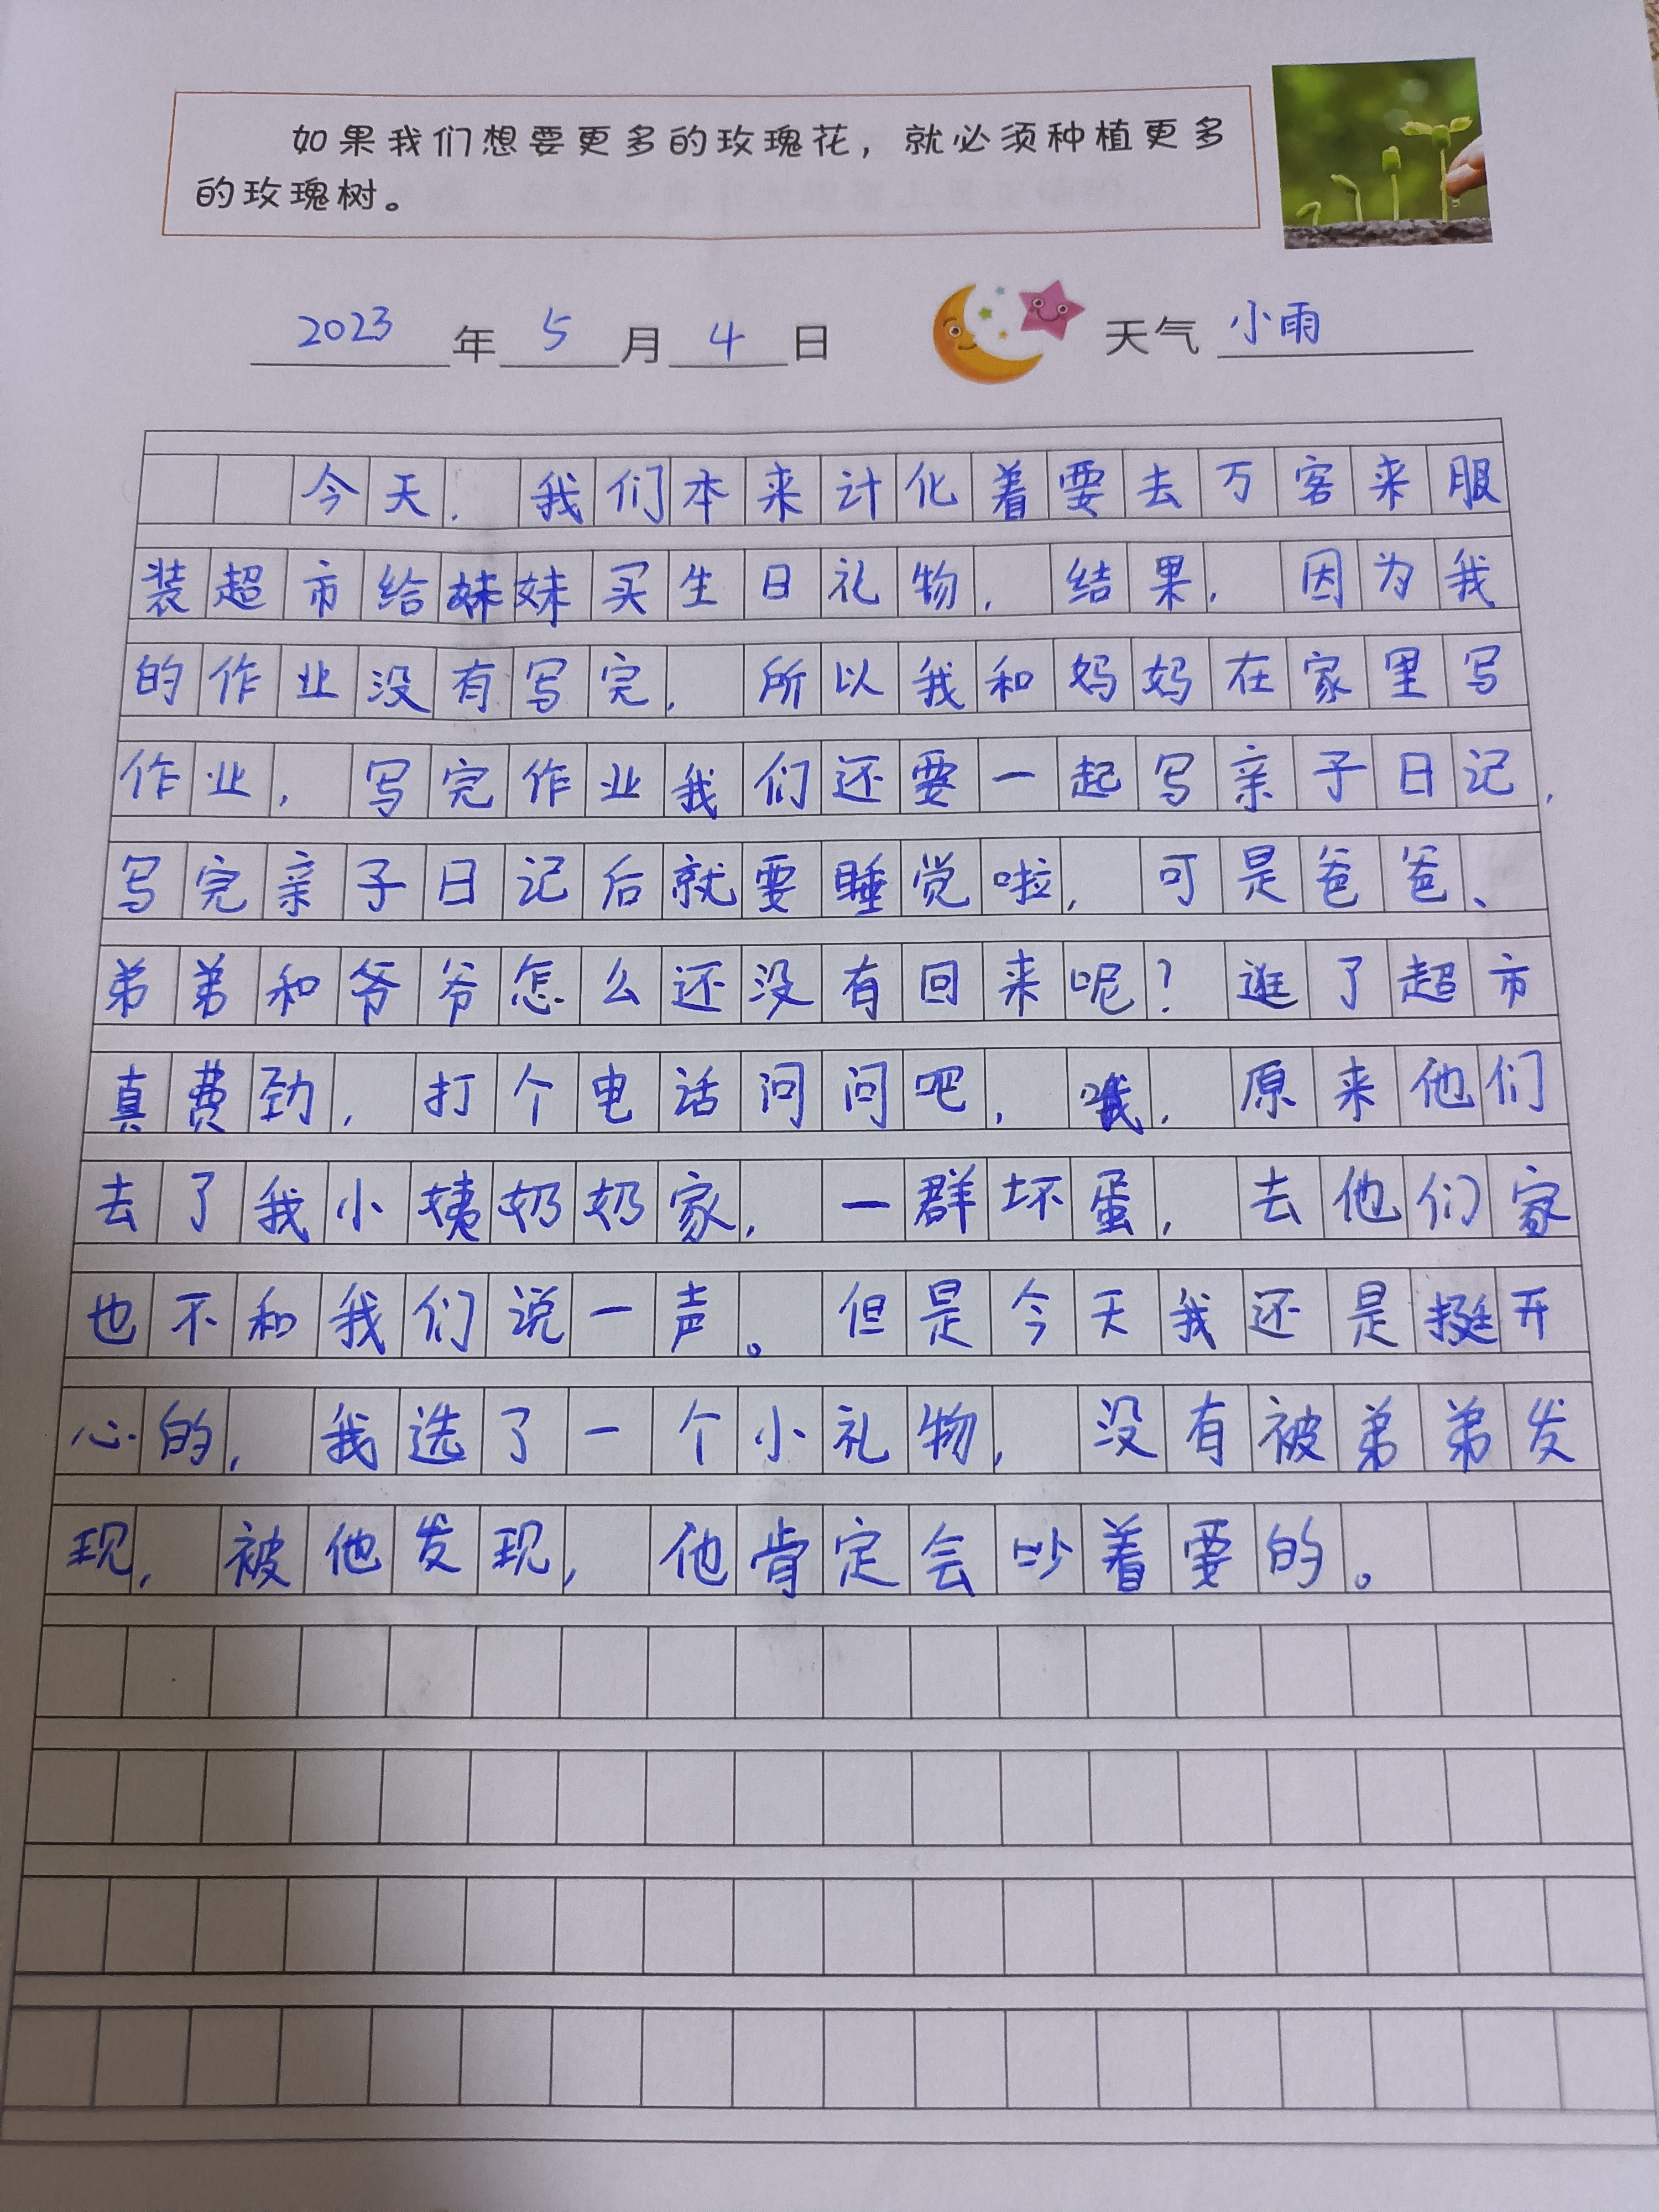 如果我们想要更多的玫瑰花，就必须种植更多
的玫瑰树。
2023年5月4日 天气 小雨
今天，我们本来计化着要去万客来服
装超市给妹妹买生日礼物，结果，因为我
的作业没有写完，所以我和妈妈在家里写
作业，写完作业我们还要一起写亲子日记，
写完亲子日记后就要睡觉啦，可是爸爸、
弟弟和爷爷怎么还没有回来呢？逛了超市
真费劲，打个电话问问吧，哦，原来他们
去了我小姨奶奶家，一群坏蛋，去他们家
也不和我们说一声。但是今天我还是挺开
心的，我选了一个小礼物，没有被弟弟发
现，被他发现，他肯定会吵着要的。